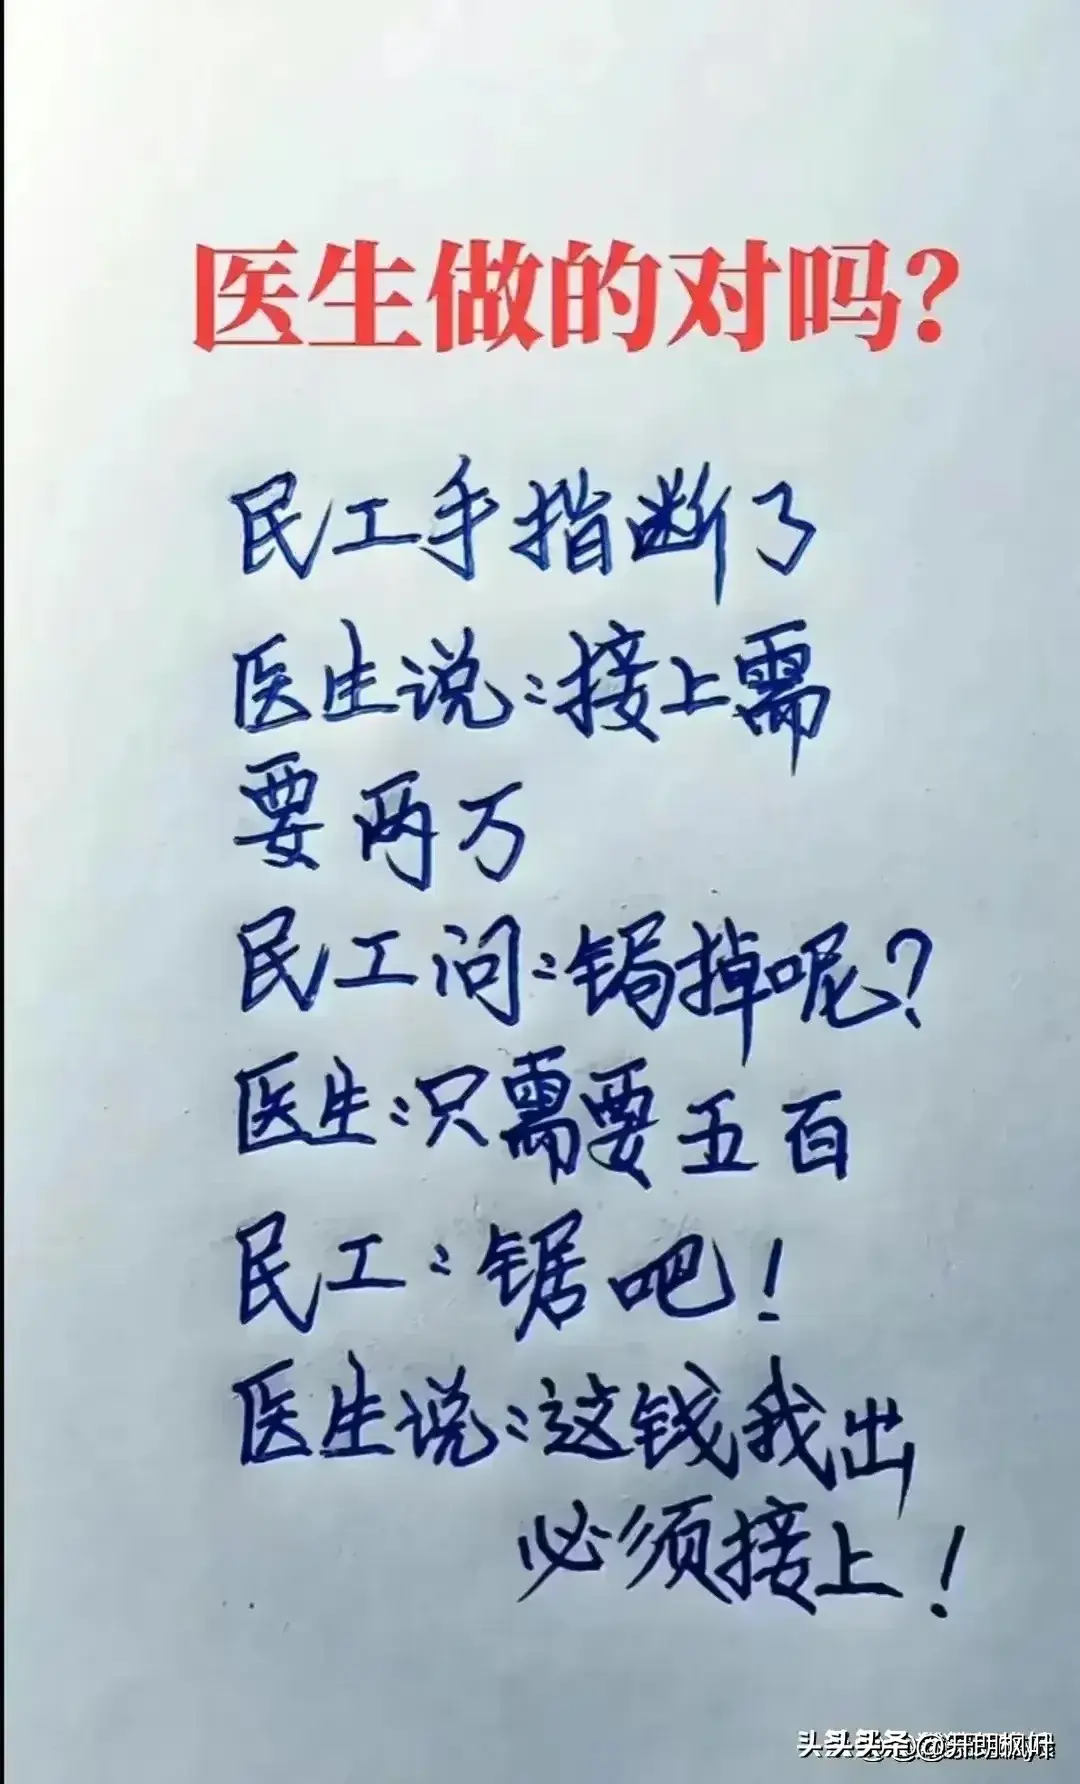 医生做的对吗?
民工手指断了
医生说:接上需
要两万
民工问:锯掉呢?
医生:只需要五百
民工:锯吧!
医生说:这钱我出
必须接上!